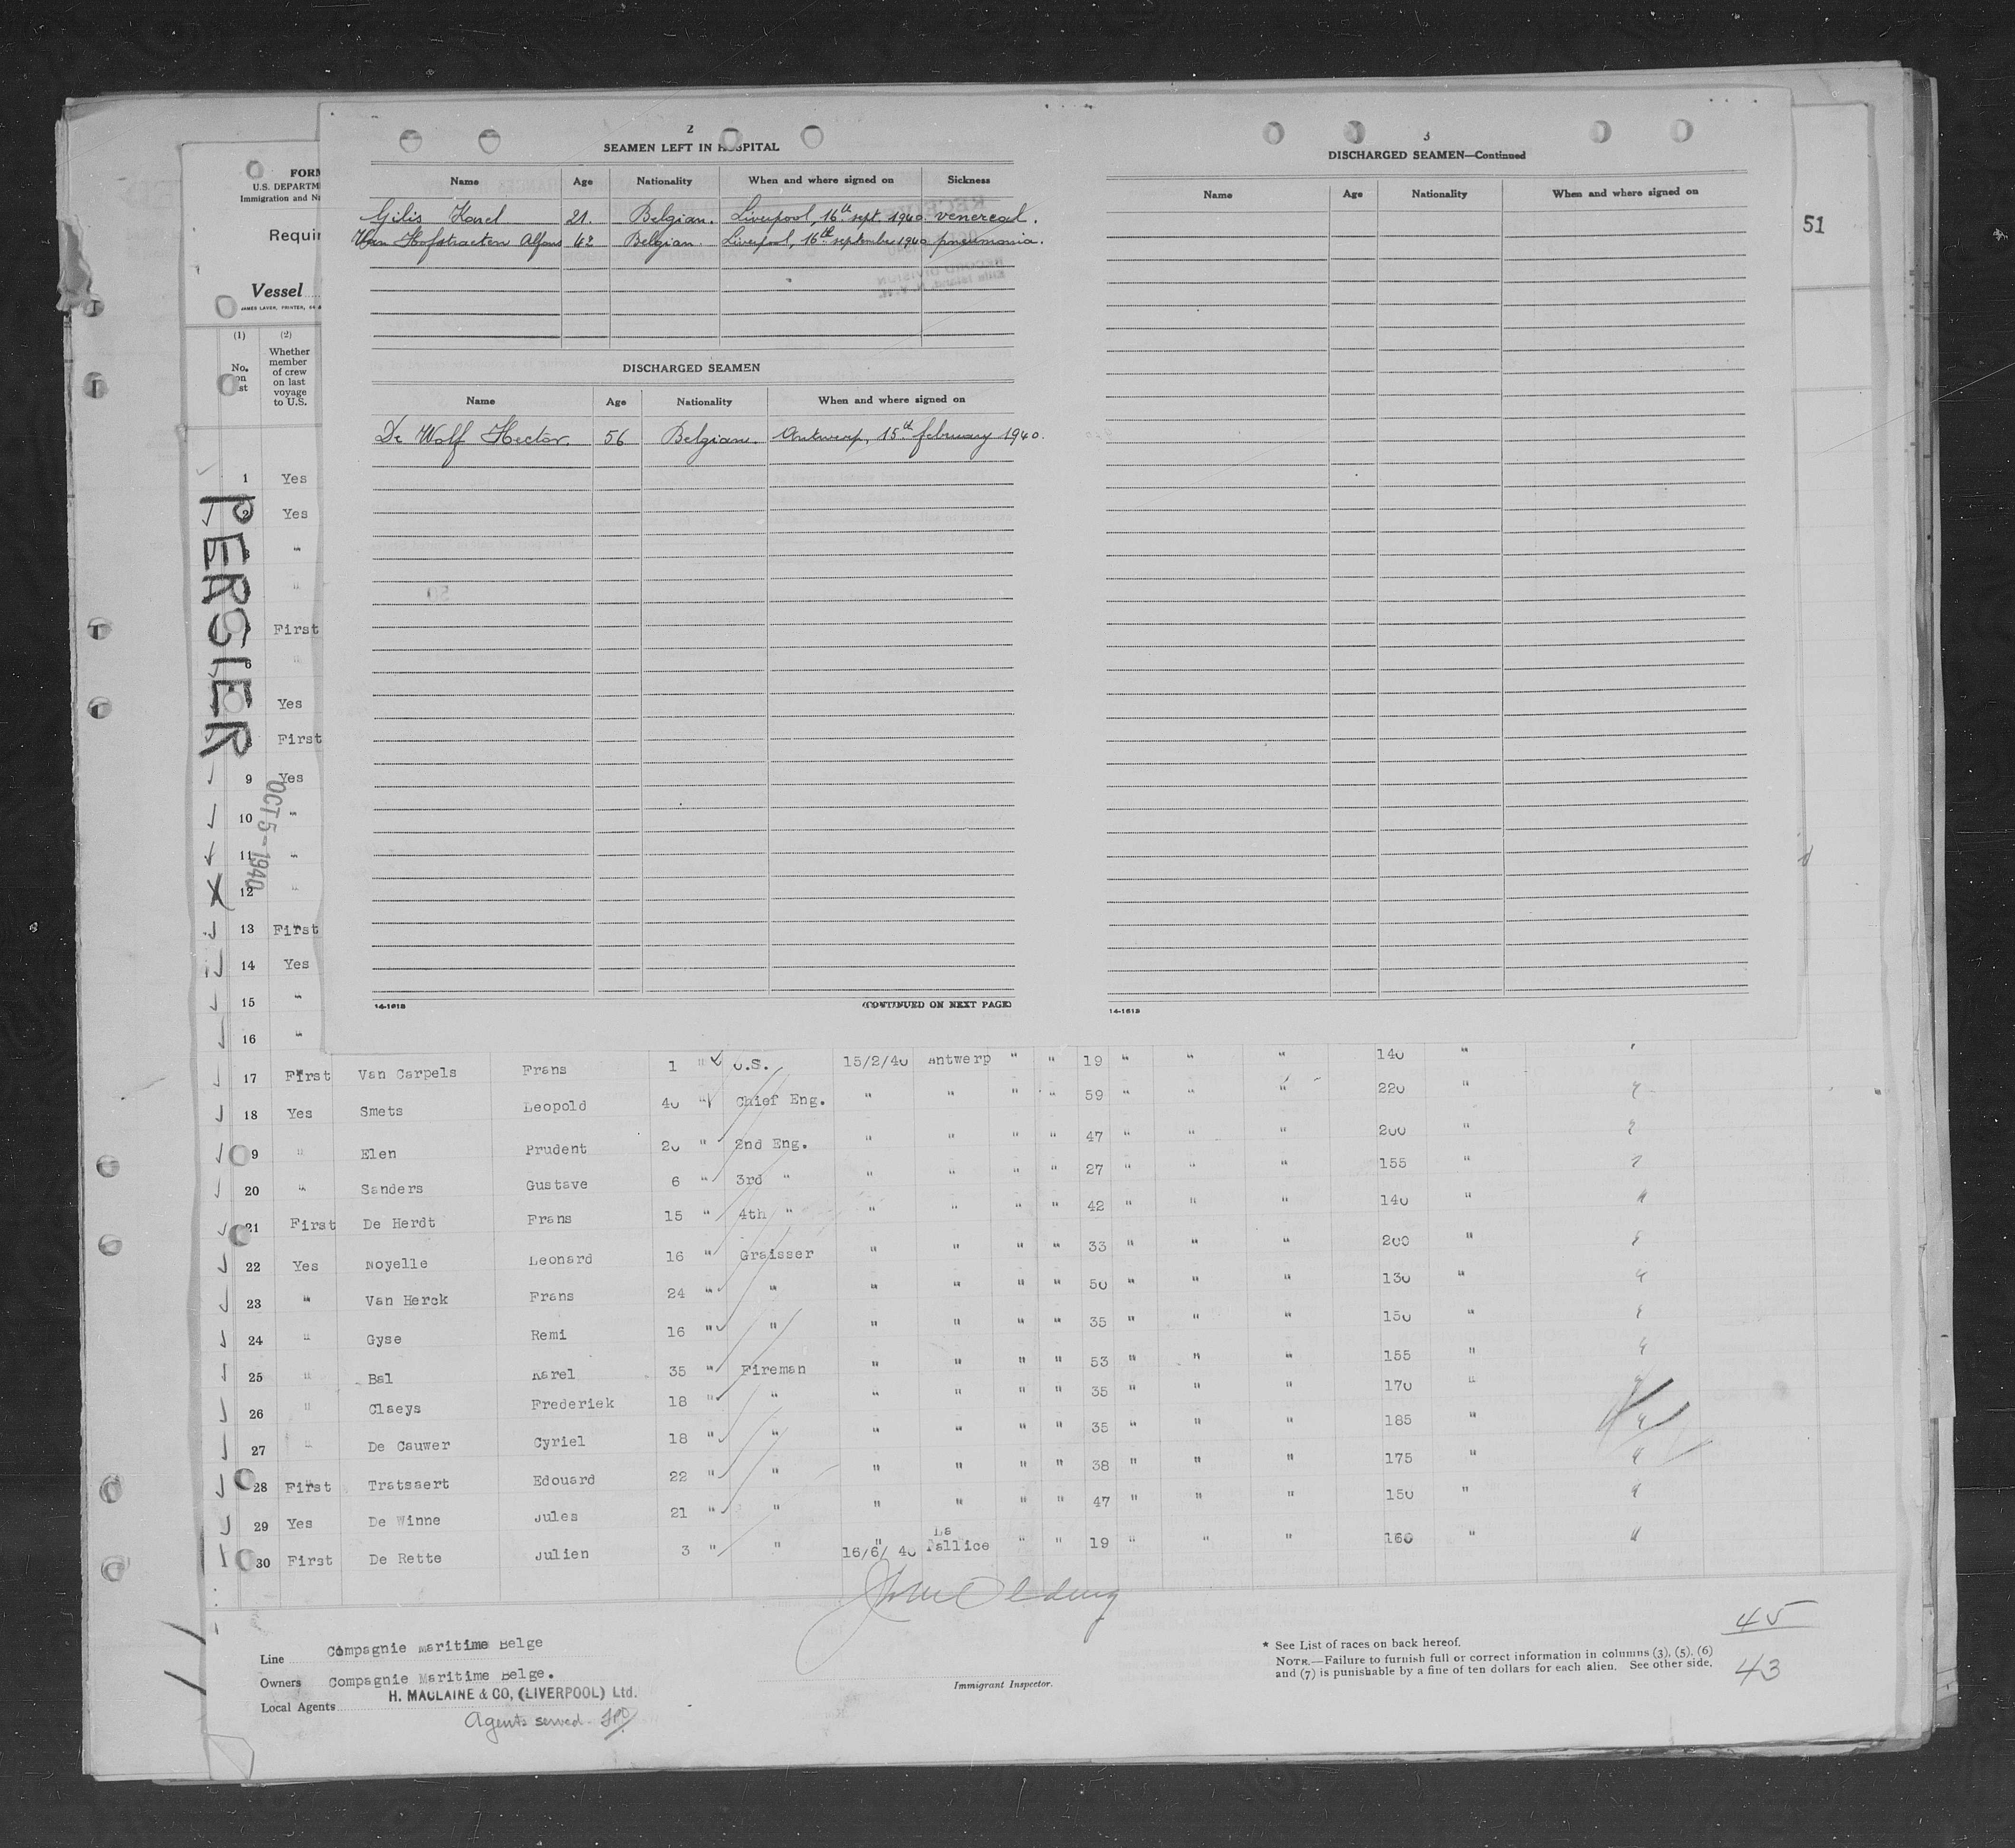 2
SEAMEN LEFT IN HOSPITAL
Name Age Nationality When and where signed on Sickness
Gilis Karel 21. Belgian. Liverpool, 16th sept. 1940. venereal.
Van Hofstraeten Alfons 42 Belgian. Liverpool, 16th september 1940 pneumonia.
DISCHARGED SEAMEN
Name Age Nationality When and where signed on
De Wolf Hector. 56 Belgian. Antwerp, 15th february 1940.
14-1618 (CONTINUED ON NEXT PAGE)
3
DISCHARGED SEAMEN—Continued
Name Age Nationality When and where signed on
14-1618
51
FORM
U.S. DEPARTM
Immigration and N
Requir
Vessel
(1) (2)
No. on list
Whether member of crew on last voyage to U.S.
PERSIER
OCT 5-1940
1 Yes
2 Yes
"
"
First
6 "
Yes
First
9 Yes
10 "
11 "
12 "
13 First
14 Yes
15 "
16 "
17 First Van Carpels Frans 1 " O.S. 15/2/40 Antwerp " " 19 " " " 140 " "
18 Yes Smets Leopold 40 " Chief Eng. " " " " 59 " " " 220 " "
19 " Elen Prudent 20 " 2nd Eng. " " " " 47 " " " 200 " "
20 " Sanders Gustave 6 " 3rd " " " " " 27 " " " 155 " "
21 First De Herdt Frans 15 " 4th " " " " " 42 " " " 140 " "
22 Yes Noyelle Leonard 16 " Graisser " " " " 33 " " " 200 " "
23 " Van Herck Frans 24 " " " " " " 50 " " " 130 " "
24 " Gyse Remi 16 " " " " " " 35 " " " 150 " "
25 " Bal Karel 35 " Fireman " " " " 53 " " " 155 " "
26 " Claeys Frederiek 18 " " " " " " 35 " " " 170 " "
27 " De Cauwer Cyriel 18 " " " " " " 35 " " " 185 " "
28 First Tratsaert Edouard 22 " " " " " " 38 " " " 175 " "
29 Yes De Winne Jules 21 " " " " " " 47 " " " 150 " "
30 First De Rette Julien 3 " " 16/6/40 La Pallice " " 19 " " " 160 " "
Line Compagnie Maritime Belge
Owners Compagnie Maritime Belge.
Local Agents H. MACLAINE & CO, (LIVERPOOL) Ltd.
Agents served.
Immigrant Inspector.
* See List of races on back hereof.
NOTE.—Failure to furnish full or correct information in columns (3), (5), (6)
and (7) is punishable by a fine of ten dollars for each alien. See other side.
45
43